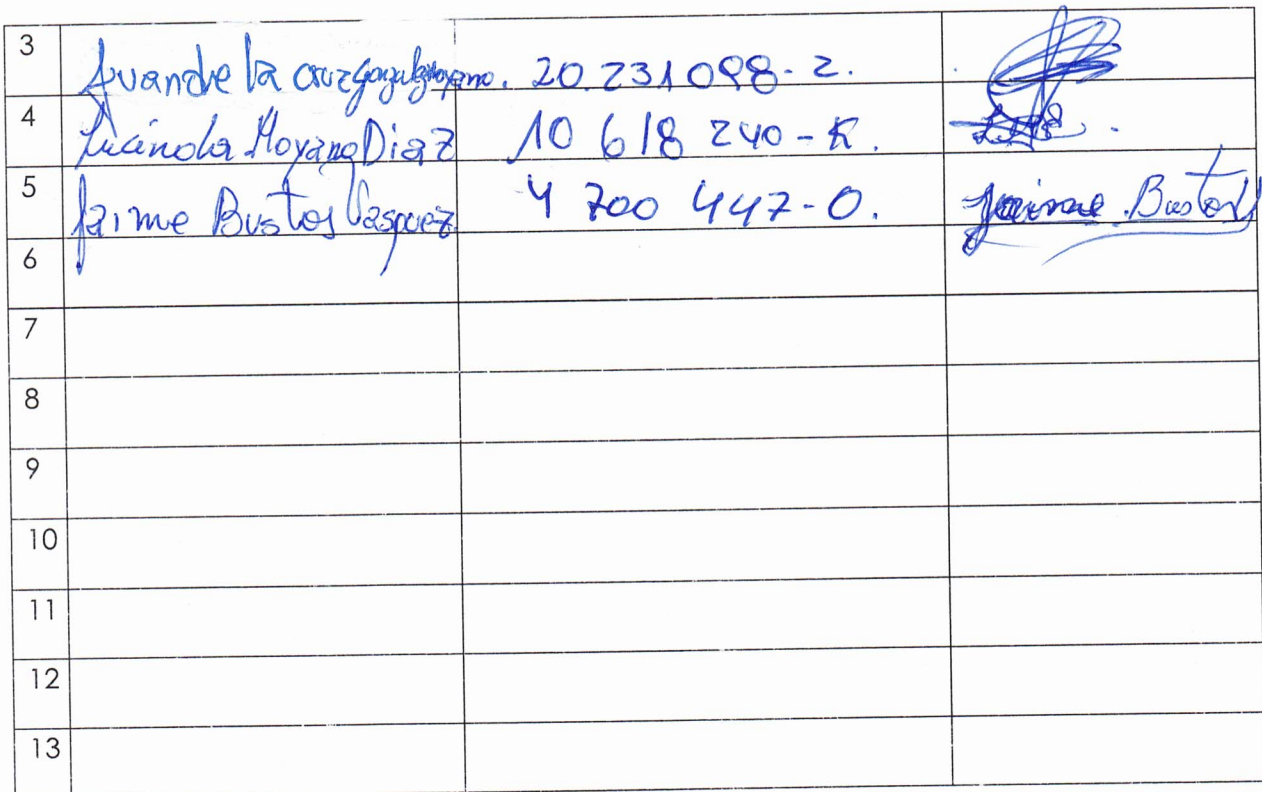 3 Juan de la cruz Gonzalez Moyano. 20.231098-2.
4 Lucinda Moyano Diaz 10 618 240-K.
5 Jaime Bustos Vasquez 4 700 447-0. Jaime Bustos V
6
7
8
9
10
11
12
13